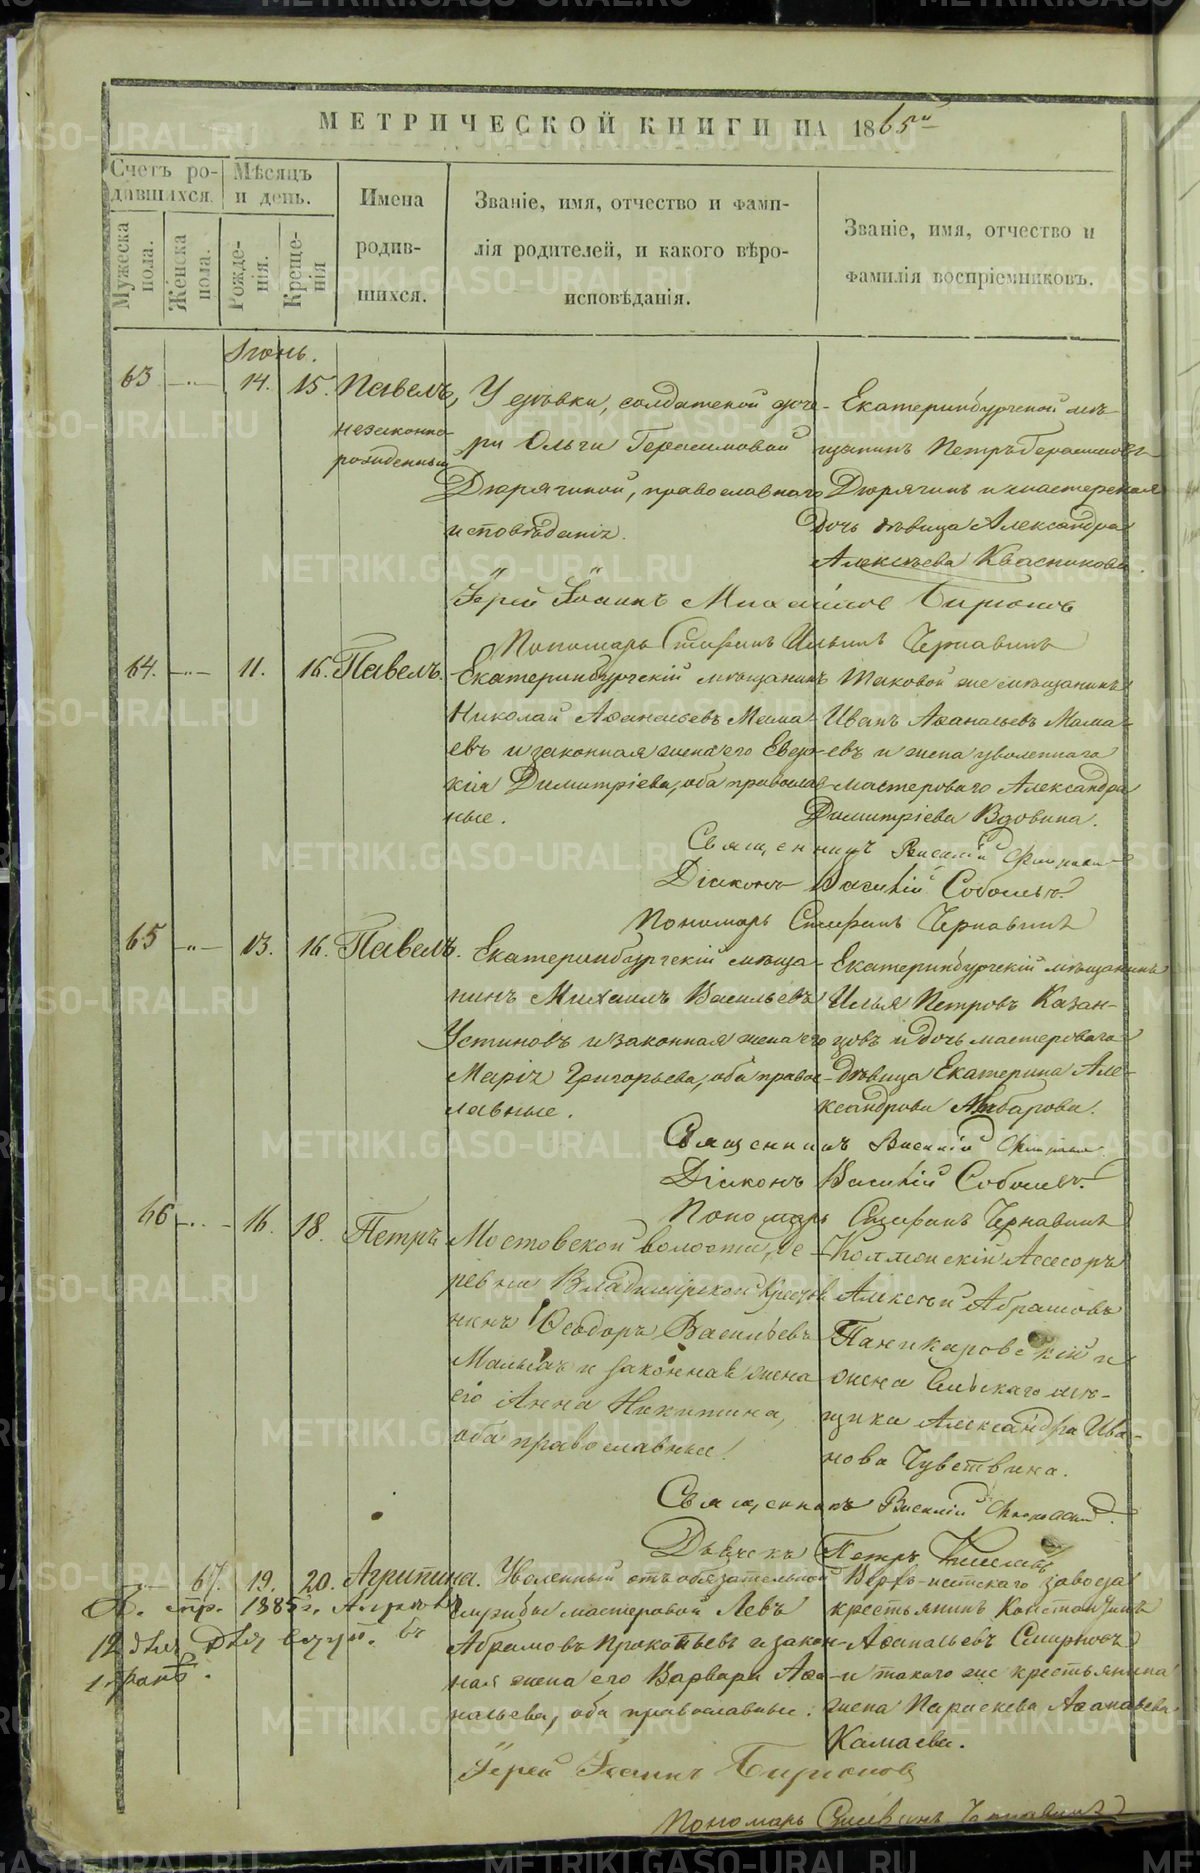 МЕТРИЧЕСКОЙ КНИГИ НА 1865й
Счетъ ро-
дившихся.
Мѣсяцъ
и день.
Мужеска
пола.
Женска
пола.
Рожде-
нія.
Креще-
нія
Имена
родив-
шихся.
Званіе, имя, отчество и фами-
лія родителей, и какого вѣро-
исповѣданія.
Званіе, имя, отчество и
фамилія воспріемниковъ.
Іюнь.
63 14. 15. Павелъ,
незаконно-
рожденный
У дѣвки, солдатской доче-
ри Ольги Герасимовой
Дюрягиной, православнаго
исповѣданія.
Екатеринбургской мѣ-
щанинъ Петръ Герасимовъ
Дюрягинъ и мастерская
дочь дѣвица Александра
Алексѣева Квасникова.
Іерей Іоаннъ Михайлов Бирюков
Пономарь Стефанъ Ильинъ Чернавинъ
64. 11. 16. Павелъ.
Екатеринбургскій мѣщанинъ
Николай Аѳанасьевъ Мама-
евъ и законная жена его Евдо-
кія Димитріева, оба православ-
ные.
Таковой же мѣщанинъ
Иванъ Аѳанасьевъ Мама-
евъ и жена уволеннаго
мастероваго Александра
Димитріева Вдовина.
Священникъ Василій
Діаконъ Василій Соболевъ.
Пономарь Стефанъ Чернавинъ
65 13. 16. Павелъ.
Екатеринбургскій мѣща-
нинъ Михаилъ Васильевъ
Устиновъ и законная жена его
Марія Григорьева, оба правос-
лавные.
Екатеринбургскій мѣщанинъ
Илья Петровъ Казан-
цовъ и дочь мастероваго
дѣвица Екатерина Але-
ксандрова
Священникъ Василій
Діаконъ Василій Соболевъ.
Пономарь Стефанъ Чернавинъ
66 16. 18. Петръ
Мостовской волости, де-
ревни Владимірской
Ѳеодоръ Васильевъ
и законная жена
его Анна Никитина,
оба православные.
Коллежскій Асесоръ
Алексѣй Абрамовъ
и
жена
Александра Ива-
нова Чувствина.
Священникъ Василій
Дьячекъ Петръ Киселевъ
67. 19. 20. Агрипина.
Уволенный отъ обязательной
службы мастеровой Левъ
Абрамовъ Прокопьевъ и закон-
ная жена его Варвара Аѳа-
насьева, оба православные.
Верхъ-исетскаго завода
крестьянинъ Константинъ
Аѳанасьевъ Смирновъ
и такого же крестьянина
жена Параскева Аѳанасьева
Камаева.
1885 г.
12 для
Іерей Іоаннъ Бирюковъ
Пономарь Стефанъ Чернавинъ